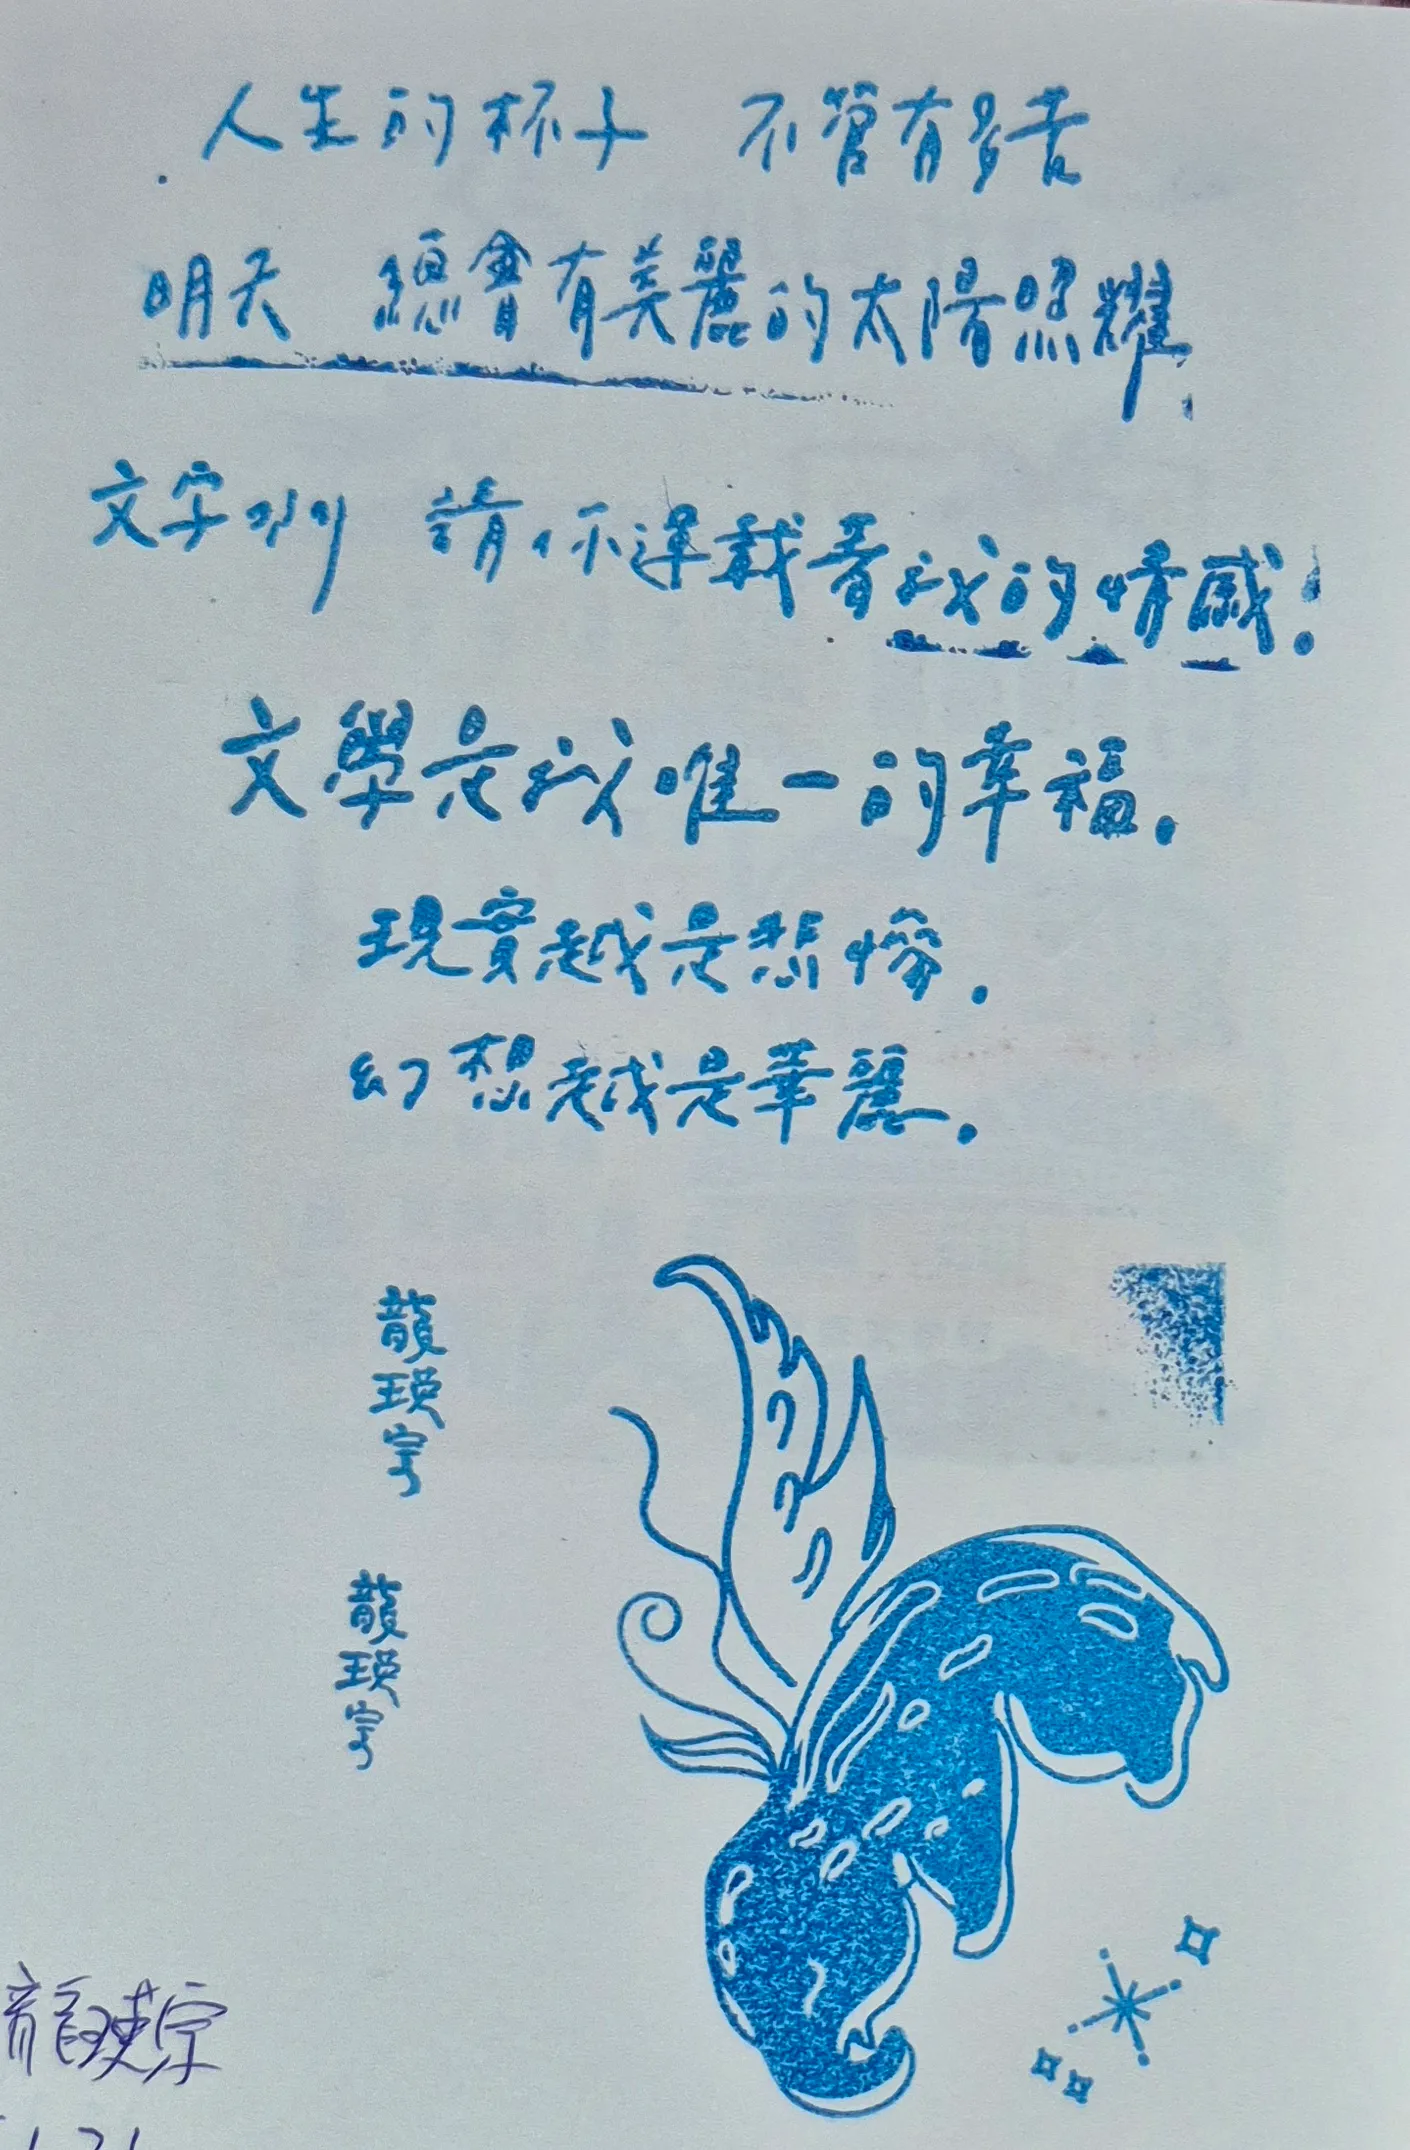 人生的杯子 不管有多苦
明天 總會有美麗的太陽照耀,
文字啊 請你運載著我的情感!
文學是我唯一的幸福.
現實越是悲慘.
幻想越是華麗.
龍瑛宗
龍瑛宗
龍瑛宗